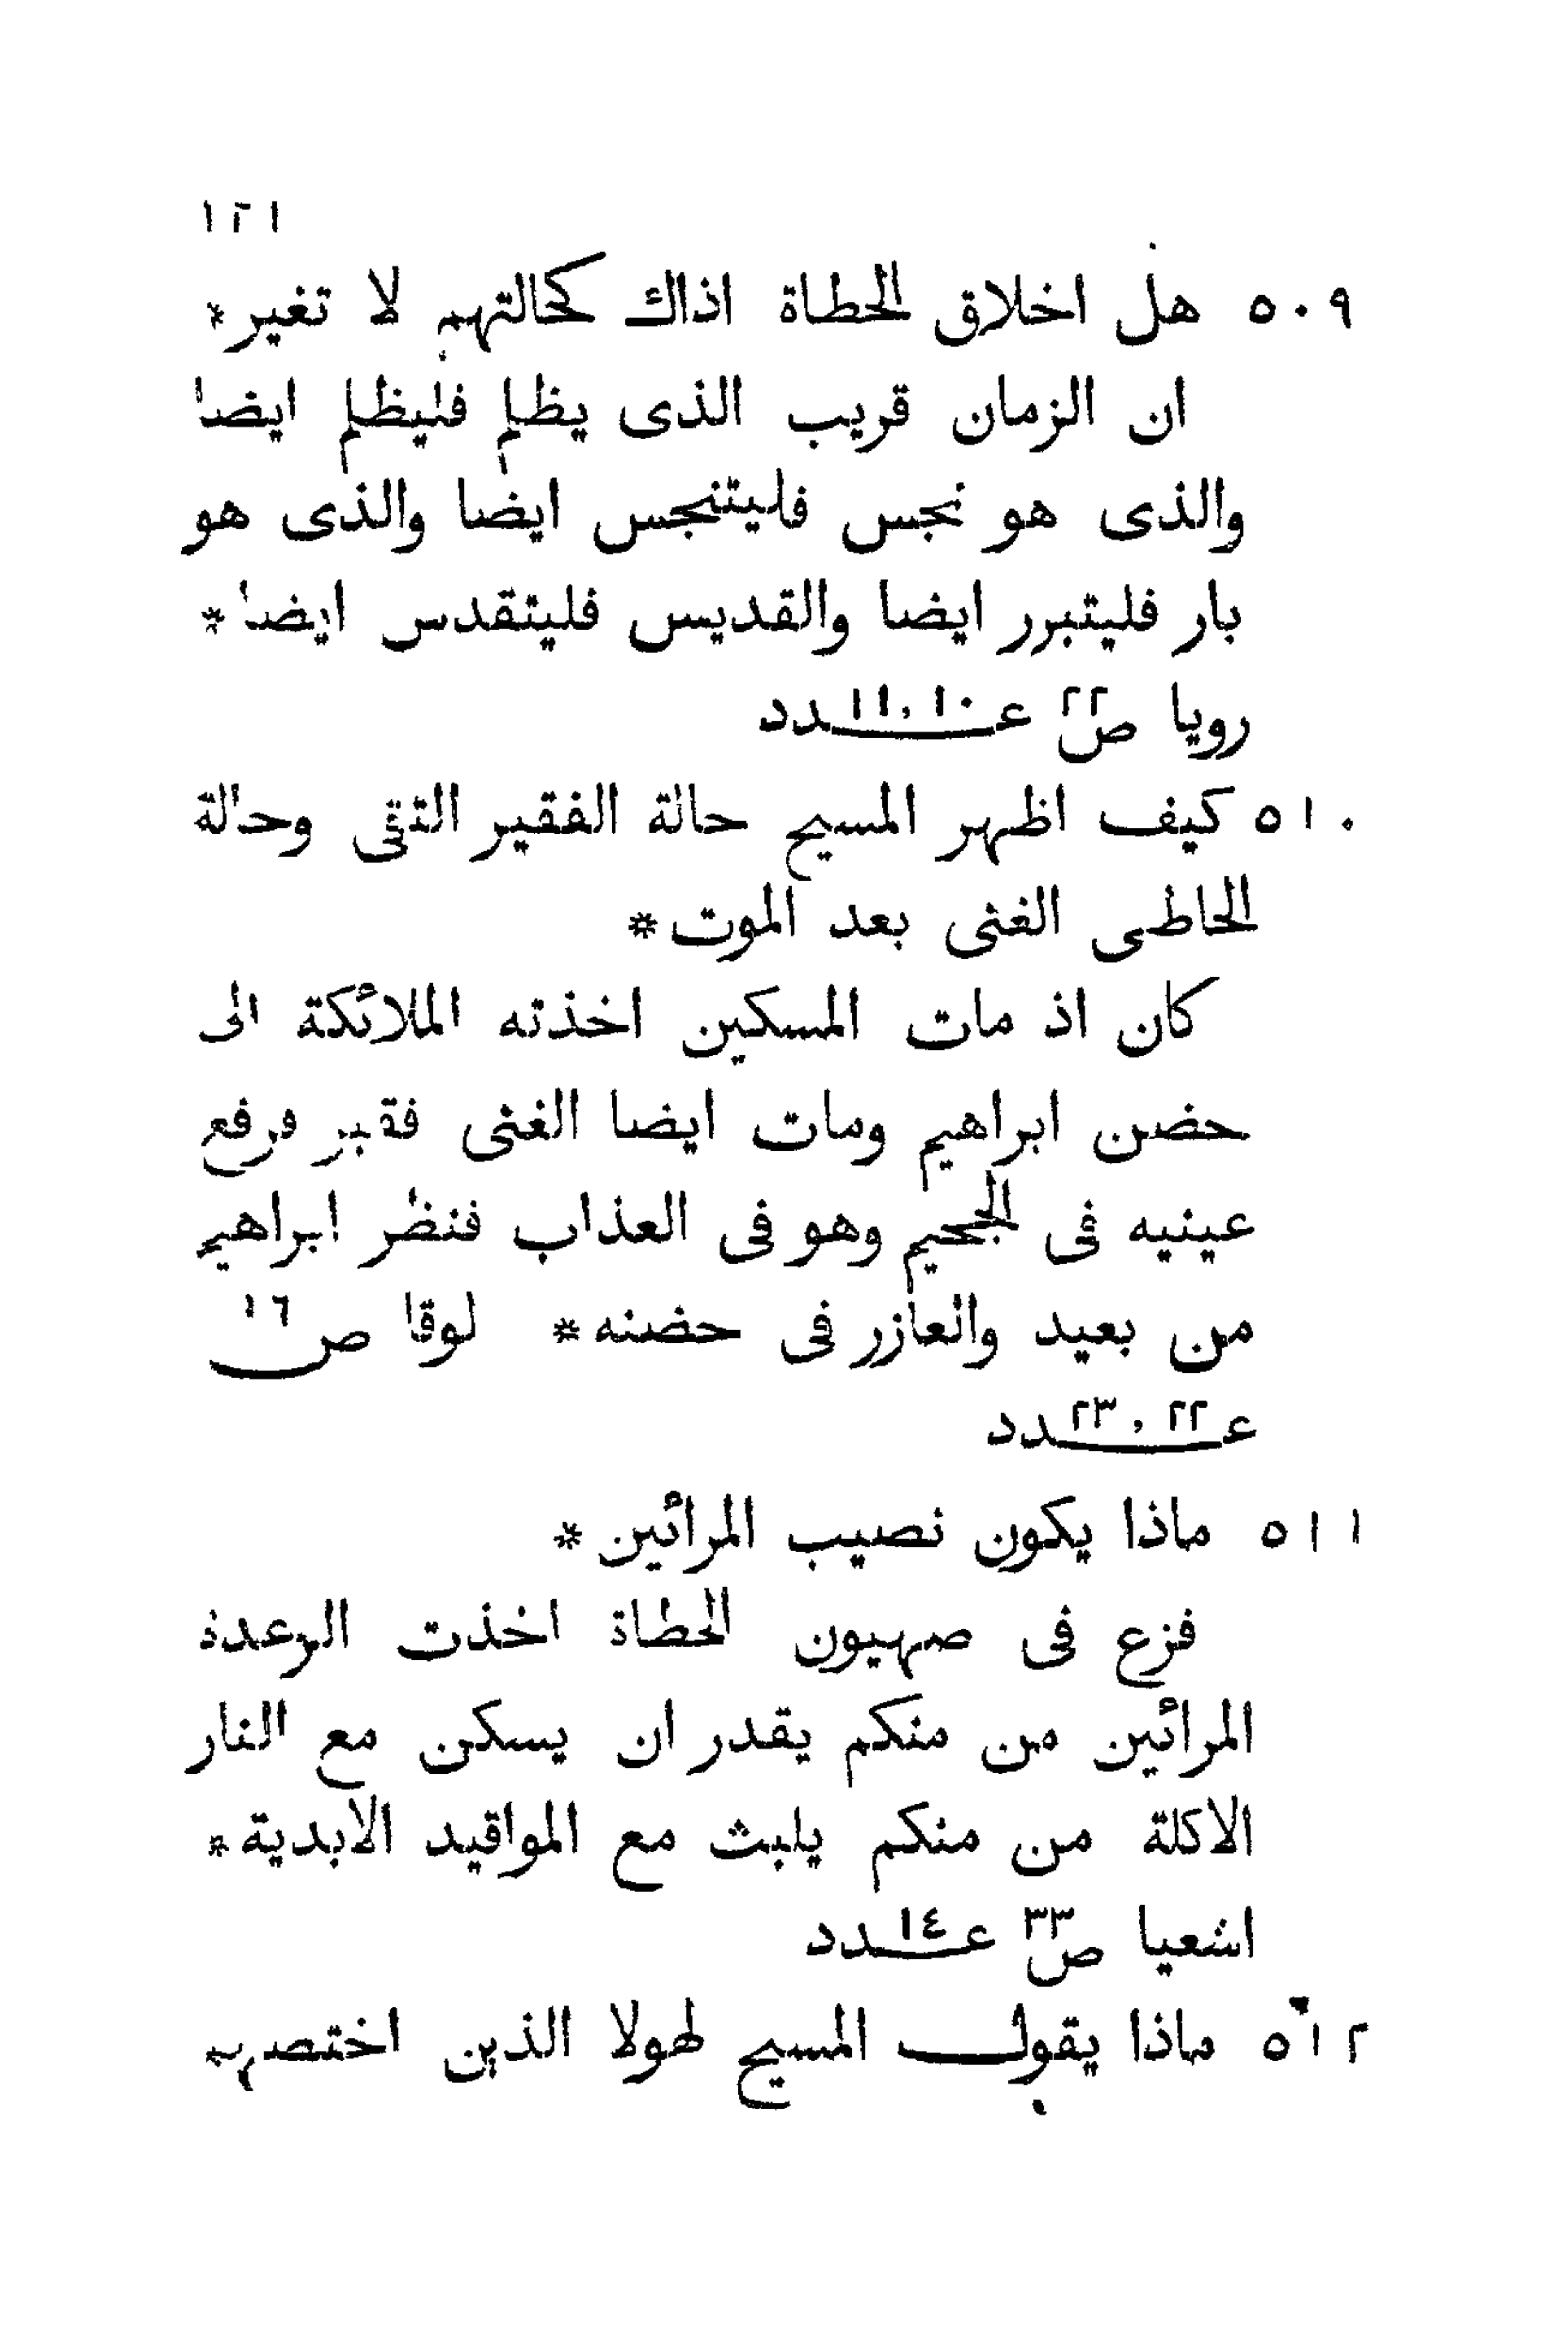 ١٢١
٥٠٩ هل اخلاق الخطاة اذاك كحالتهم لا تغير*
ان الزمان قريب الذى يظلم فليظلم ايضا
والذى هو نجس فليتنجس ايضا والذى هو
بار فليتبرر ايضا والقديس فليتقدس ايضا*
رويا ص٢٢ عــ١٠,١١ــدد
٥١٠ كيف اظهر المسيح حالة الفقير التقى وحالة
الخاطى الغنى بعد الموت*
كان اذ مات المسكين اخذته الملائكة الى
حضن ابراهيم ومات ايضا الغنى فقبر فرفع
عينيه فى الجحيم وهو فى العذاب فنظر ابراهيم
من بعيد والعازر فى حضنه* لوقا ص١٦
عــ٢٢,٢٣ــدد
٥١١ ماذا يكون نصيب المرائين*
فزع فى صهيون الخطاة اخذت الرعدة
المرائين من منكم يقدر ان يسكن مع النار
الاكلة من منكم يلبث مع المواقيد الابدية*
اشعيا ص٣٣ عــ١٤ــدد
٥١٢ ماذا يقول المسيح لهولا الذين اختصهم